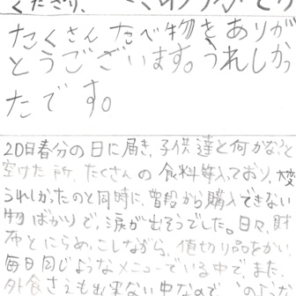 たくさん たべ物をありが
とうございます。うれしかっ
たです。
20日春分の日に届き、子供達と何かな?と
空けた所、たくさんの食料等入っており、大変
うれしかったのと同時に、普段から購入できない
物ばかりで、涙が出そうでした。日々、財
布とにらめっこしながら、値切り品をかい、
毎日同じようなメニューでいる中で、また、
外食さえも出来ない中なので、このような